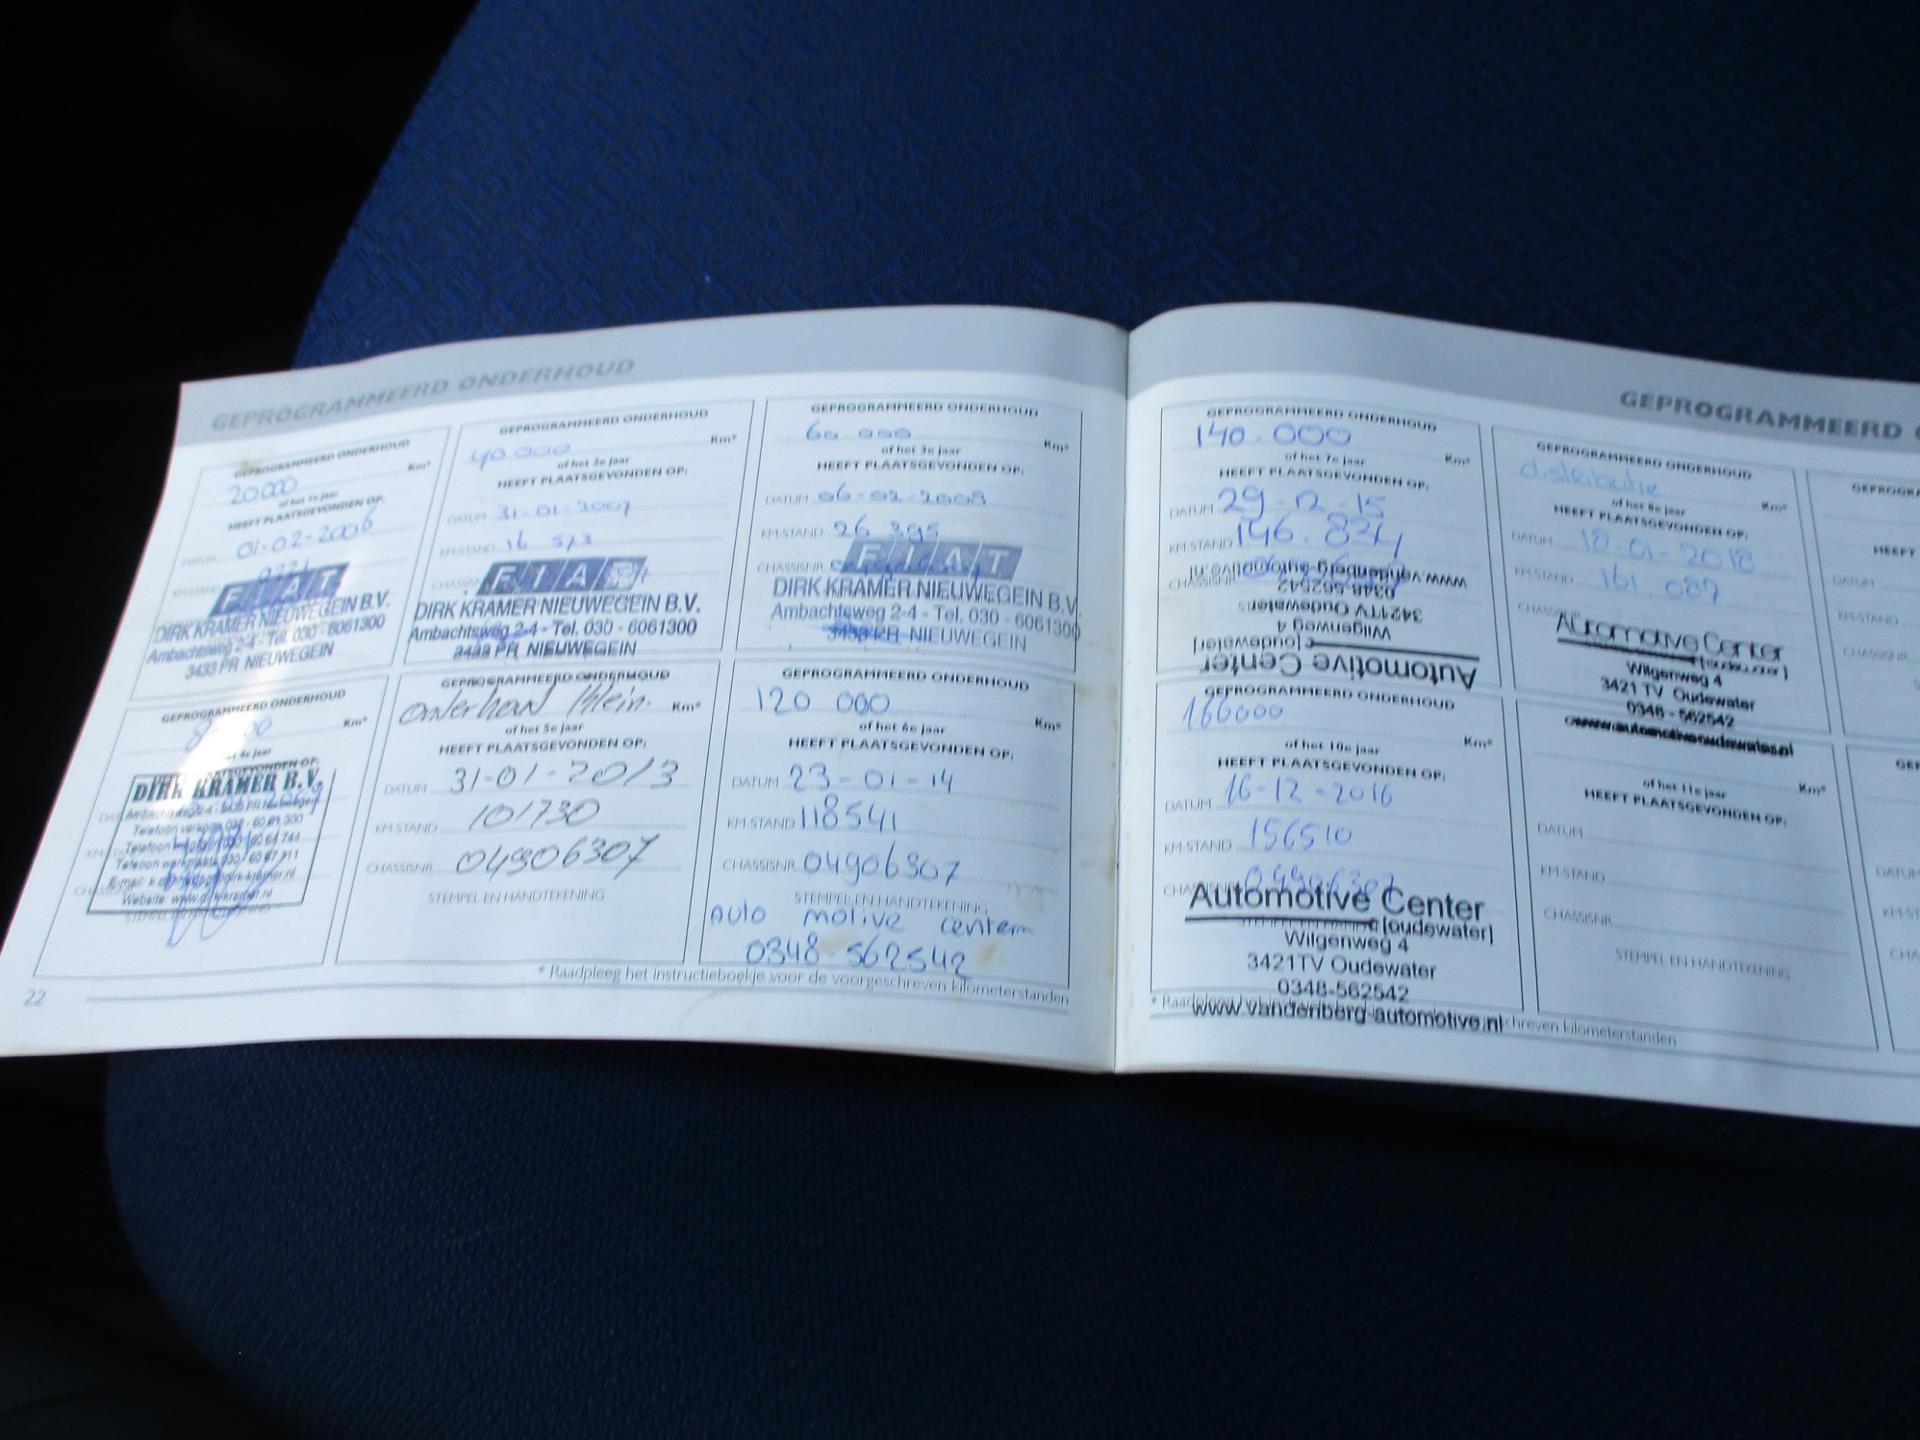 GEPROGRAMMEERD ONDERHOUD
GEPROGRAMMEERD ONDERHOUD
20000 Km*
of het 1e jaar
HEEFT PLAATSGEVONDEN OP:
DATUM 01-02-2006
KM-STAND
FIAT
DIRK KRAMER NIEUWEGEIN B.V.
Ambachtsweg 2-4 - Tel. 030 - 6061300
3433 PR NIEUWEGEIN
GEPROGRAMMEERD ONDERHOUD
40.000 Km*
of het 2e jaar
HEEFT PLAATSGEVONDEN OP:
DATUM 31-01-2007
KM-STAND 16 573
FIAT
DIRK KRAMER NIEUWEGEIN B.V.
Ambachtsweg 2-4 - Tel. 030 - 6061300
3433 PR NIEUWEGEIN
GEPROGRAMMEERD ONDERHOUD
60.000 Km*
of het 3e jaar
HEEFT PLAATSGEVONDEN OP:
DATUM 06-02-2008
KM-STAND 26 395
CHASSISNR.
FIAT
DIRK KRAMER NIEUWEGEIN B.V.
Ambachtsweg 2-4 - Tel. 030 - 6061300
3433 PR NIEUWEGEIN
GEPROGRAMMEERD ONDERHOUD
Km*
of het 4e jaar
DIRK KRAMER B.V.
Website: www.dirkkramer.nl
STEMPEL EN HANDTEKENING
GEPROGRAMMEERD ONDERHOUD
Onderhoud klein. Km*
of het 5e jaar
HEEFT PLAATSGEVONDEN OP:
DATUM 31-01-2013
KM-STAND 101730
CHASSISNR. 04906307
STEMPEL EN HANDTEKENING
GEPROGRAMMEERD ONDERHOUD
120 000 Km*
of het 6e jaar
HEEFT PLAATSGEVONDEN OP:
DATUM 23-01-14
KM-STAND 118541
CHASSISNR. 04906307
STEMPEL EN HANDTEKENING
Auto motive centem
0348-562542
* Raadpleeg het instructieboekje voor de voorgeschreven kilometerstanden
22
GEPROGRAMMEERD
GEPROGRAMMEERD ONDERHOUD
140.000 Km*
of het 7e jaar
HEEFT PLAATSGEVONDEN OP:
DATUM 29-12-15
KM-STAND 146.834
CHASSISNR.
Automotive Center
[oudewater]
Wilgenweg 4
3421TV Oudewater
0348-562542
www.vandenberg-automotive.nl
GEPROGRAMMEERD ONDERHOUD
distributie Km*
of het 8e jaar
HEEFT PLAATSGEVONDEN OP:
DATUM 18-01-2018
KM-STAND 161.087
Automotive Center
[oudewater]
Wilgenweg 4
3421 TV Oudewater
0348 - 562542
www.automotiveoudewater.nl
GEPROGRAMMEERD ONDERHOUD
166000 Km*
of het 10e jaar
HEEFT PLAATSGEVONDEN OP:
DATUM 16-12-2016
KM-STAND 156510
04906307
Automotive Center
[oudewater]
Wilgenweg 4
3421TV Oudewater
0348-562542
www.vandenberg-automotive.nl
Km*
of het 11e jaar
HEEFT PLAATSGEVONDEN OP:
DATUM
KM-STAND
CHASSISNR.
STEMPEL EN HANDTEKENING
* Raadpleeg
schreven kilometerstanden
HEEFT
DATUM
KM-STAND
CHASSISNR.